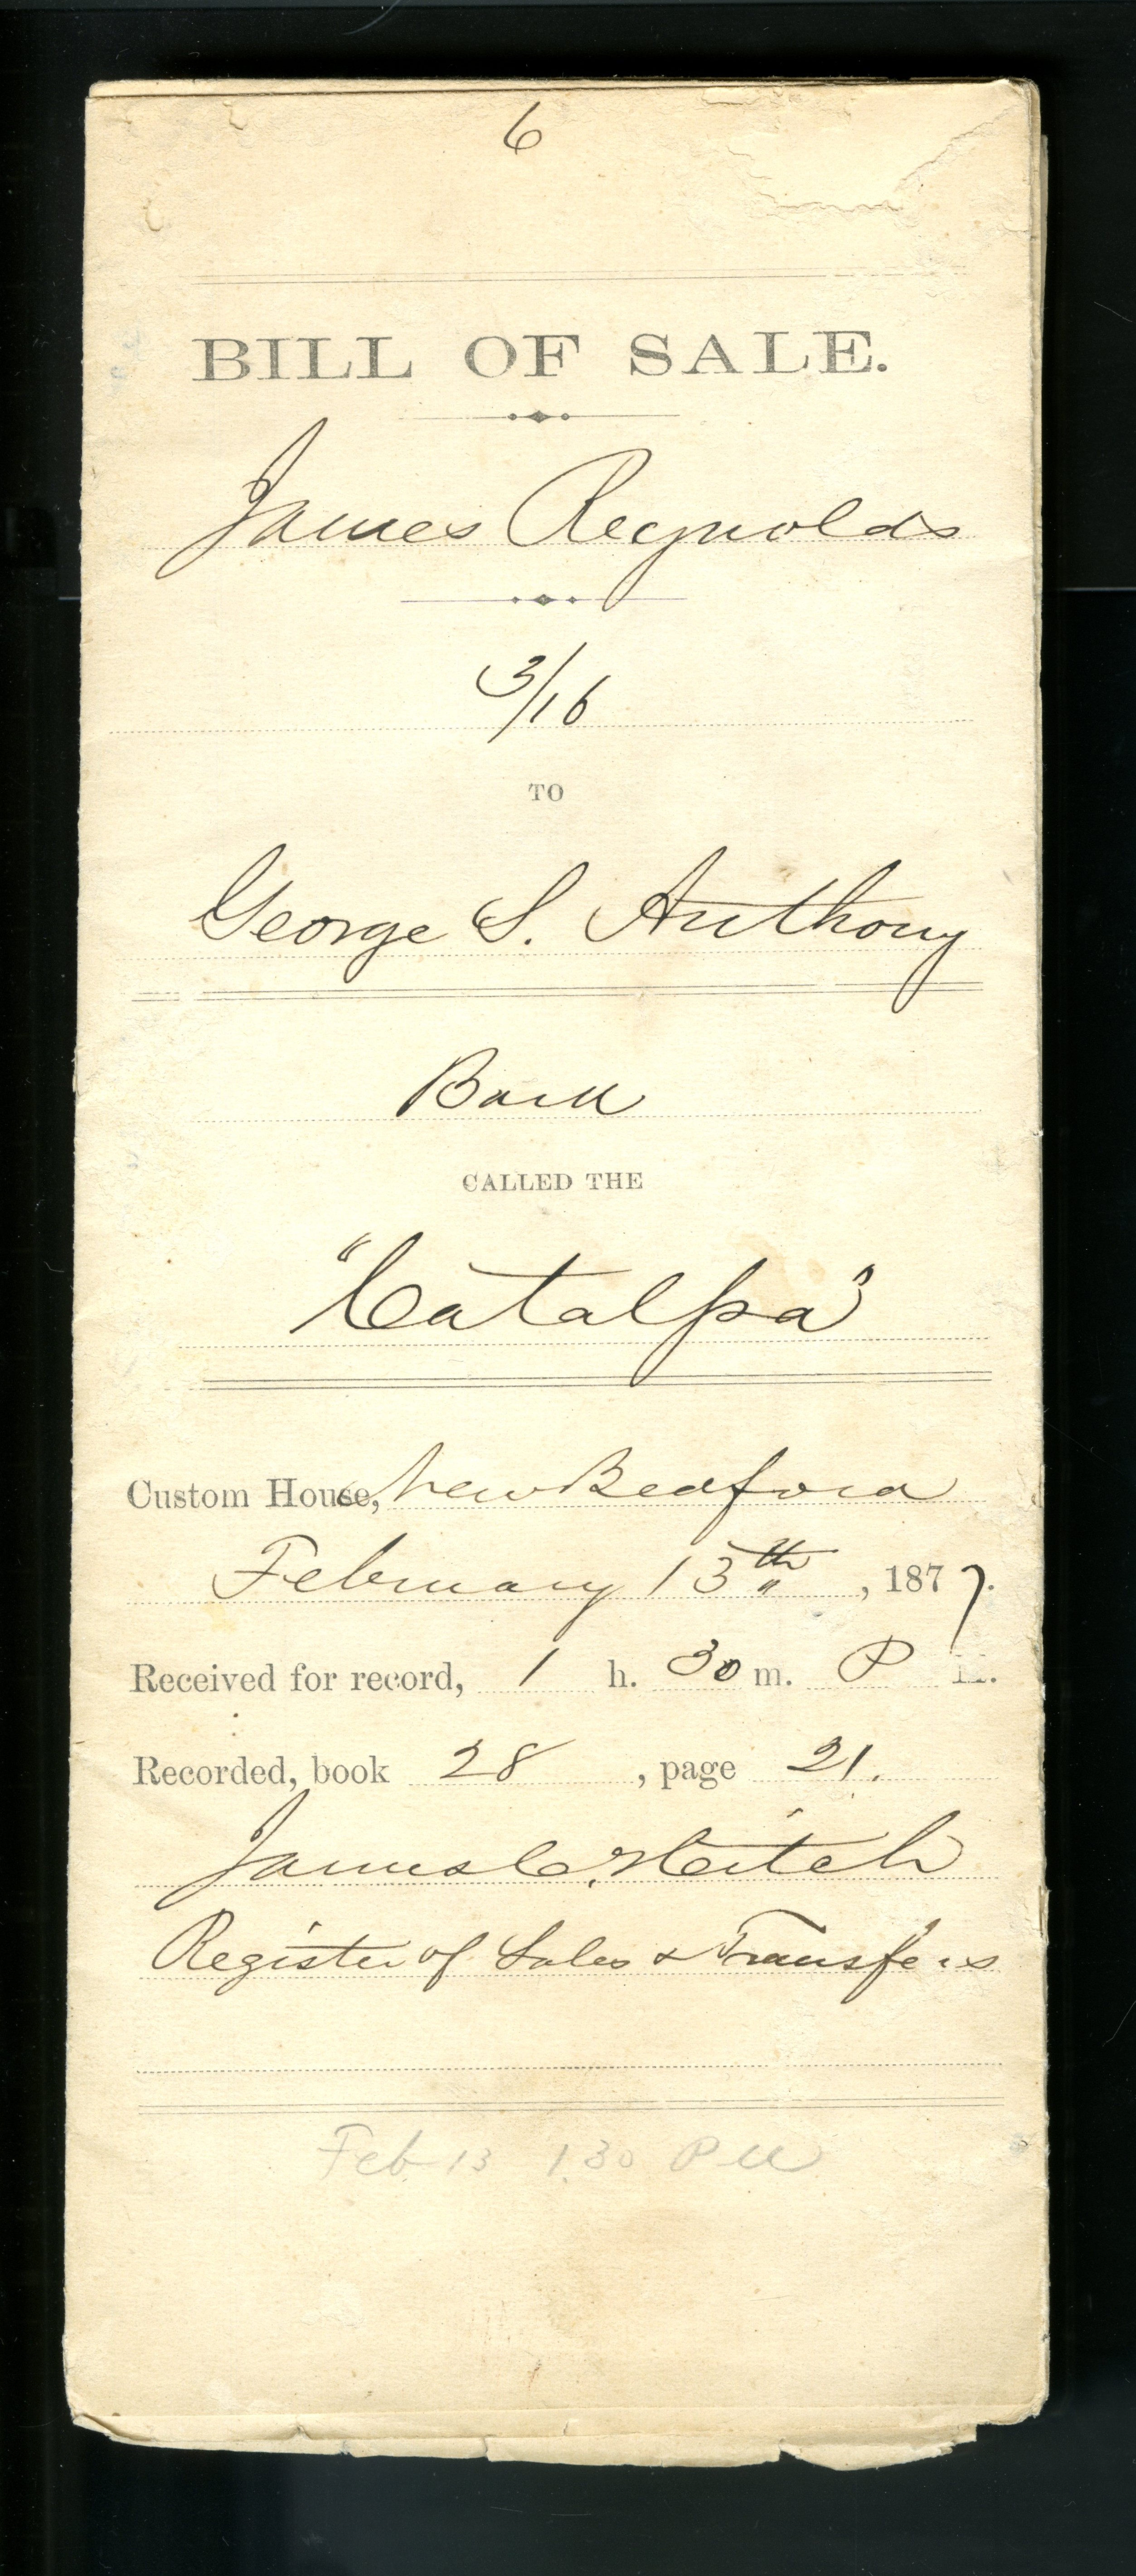 6
BILL OF SALE.
James Reynolds
3/16
TO
George S. Anthony
Bark
CALLED THE
"Catalpa"
Custom House, New Bedford
February 13th, 1877.
Received for record, 1 h. 30 m. P M.
Recorded, book 28, page 21.
James C. Hitch
Register of Sales & Transfers
Feb 13 1.30 PM